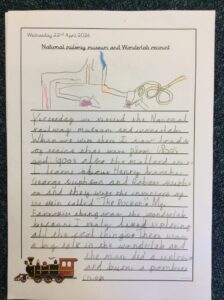 Wednesday 22nd April 2026
National railway museum and Wonderlab recount
Yesterday we visited the National
railway museum and wonderlab.
When we were then I saw loads
of trains that were from 1800s
and 1900s also the mallard
I learnt about Henry
George Stephenson and Robert
and they were the
of train called "The Rocket". My
favourite thing was the wonderlab
because I really liked exploring
all the cool things there was
a big talk in the wonderlab and
the man did a
and burnt a